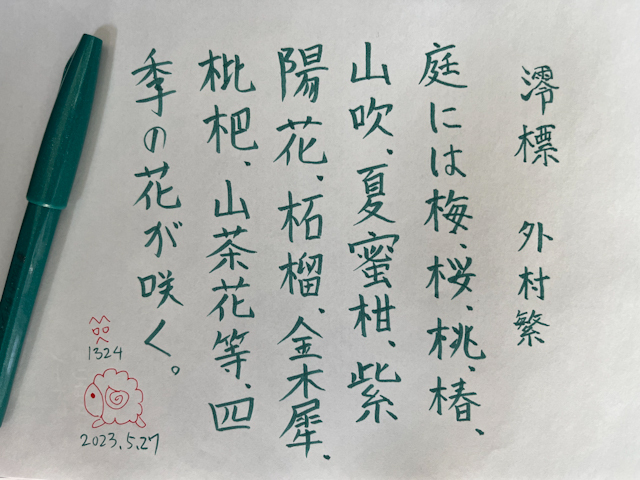 澪標　外村繁
庭には梅、桜、桃、椿、
山吹、夏蜜柑、紫
陽花、柘榴、金木犀、
枇杷、山茶花等、四
季の花が咲く。
1324
2023.5.27